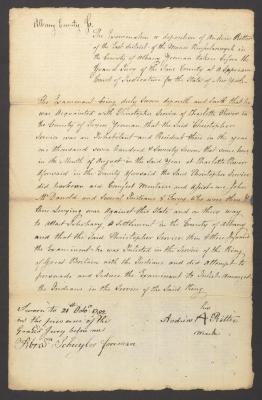 Albany County, ss.
The Examination or deposition of Andrew Ritter
of the East district of the Manor Renselaerwyck in
the County of Albany Yeoman taken before the
Grand Jury of the same County at a Supream
Court of Judicature for the State of New York
The Examinant being duly Sworn deposeth and saith that he
was acquainted with Christopher Service of Charlotte River in
the County of Tryon Yeoman, that the said Christopher
Service was an Inhabitant and Resident there in the year
one thousand seven hundred & Seventy Seven that some time
in the Month of August in the Said Year at Charlotte River
aforesaid in the County aforesaid the said Christopher Service
did harbour and Comfort Maintain and Assist one John
McDonald and several Indians & Torys who were then &
there Levying war against this State and on their way
to attack Schohary a settlement in the County of Albany
and that the said Christopher Service then & there Informed
the Examinant he was Inlisted in the Service of the King
of Great Britain with the Indians and did attempt to
persuade and Induce the Examinant to Inlist amongst
the Indians in the Service of the Said King.
Sworn to 21st Octo.
in the presence of the
Grand Jury before me
Abrm. Schuyler foreman
his
Andrew A Ritter
mark